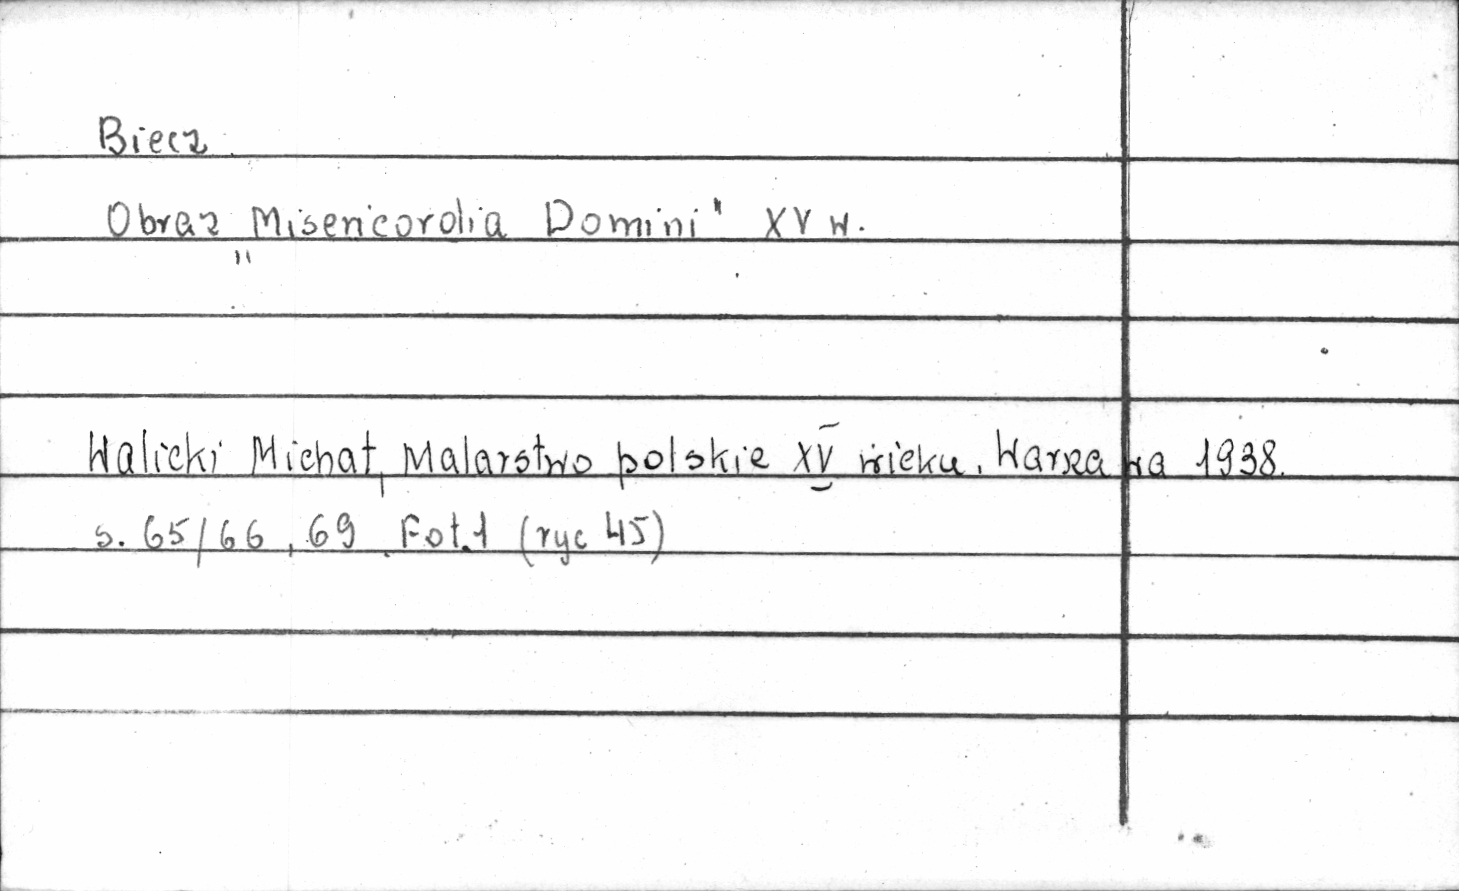 Biecz
Obraz „Misericordia Domini" XV w.
Walicki Michał, Malarstwo polskie XV wieku. Warszawa 1938.
s. 65/66, 69. Fot. 1 (ryc 45)